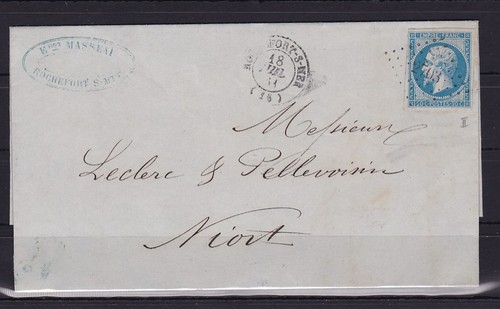 MASSEAU
ROCHEFORT S-MER
ROCHEFORT-S-MER
18
(16)
EMPIRE FRANC
20 C. POSTES 20 C.
II
Messieurs
Leclerc & Pellevoisin
Niort